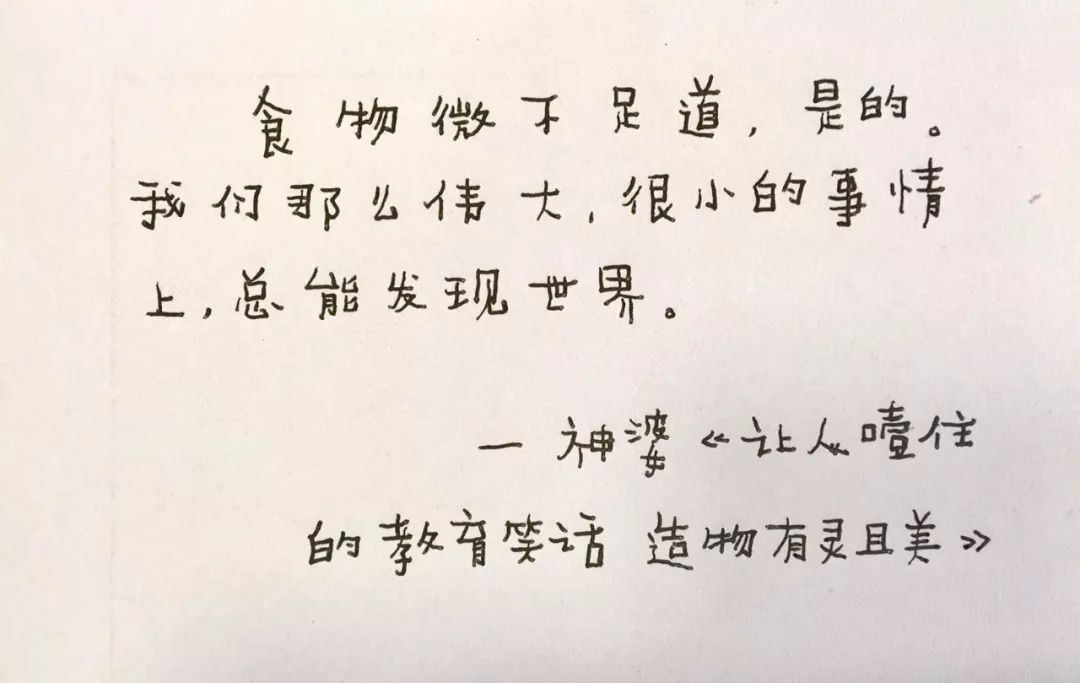 食物微不足道，是的。
我们那么伟大，很小的事情
上，总能发现世界。
— 神婆《让人噎住
的教育笑话 造物有灵且美》